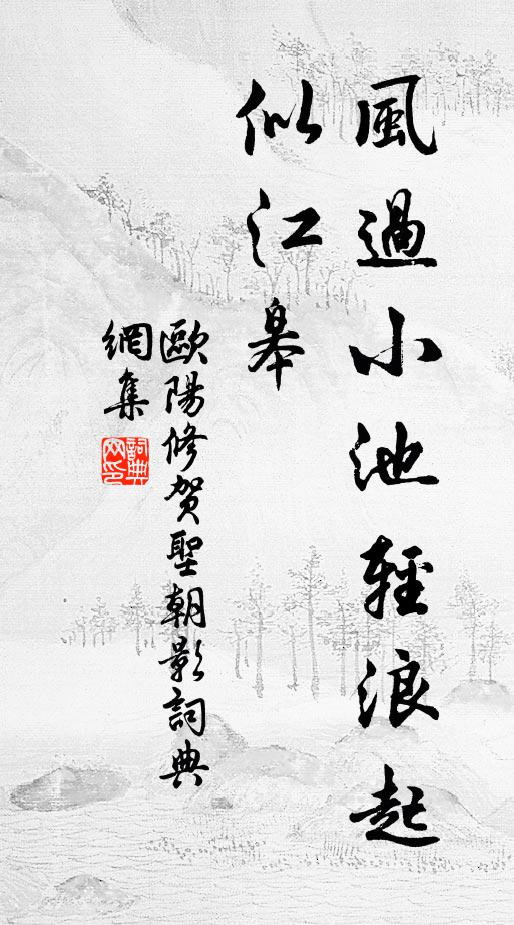 風過小池輕浪起
似江皋
歐陽修賀聖朝影詞典
網集
詞典
网印